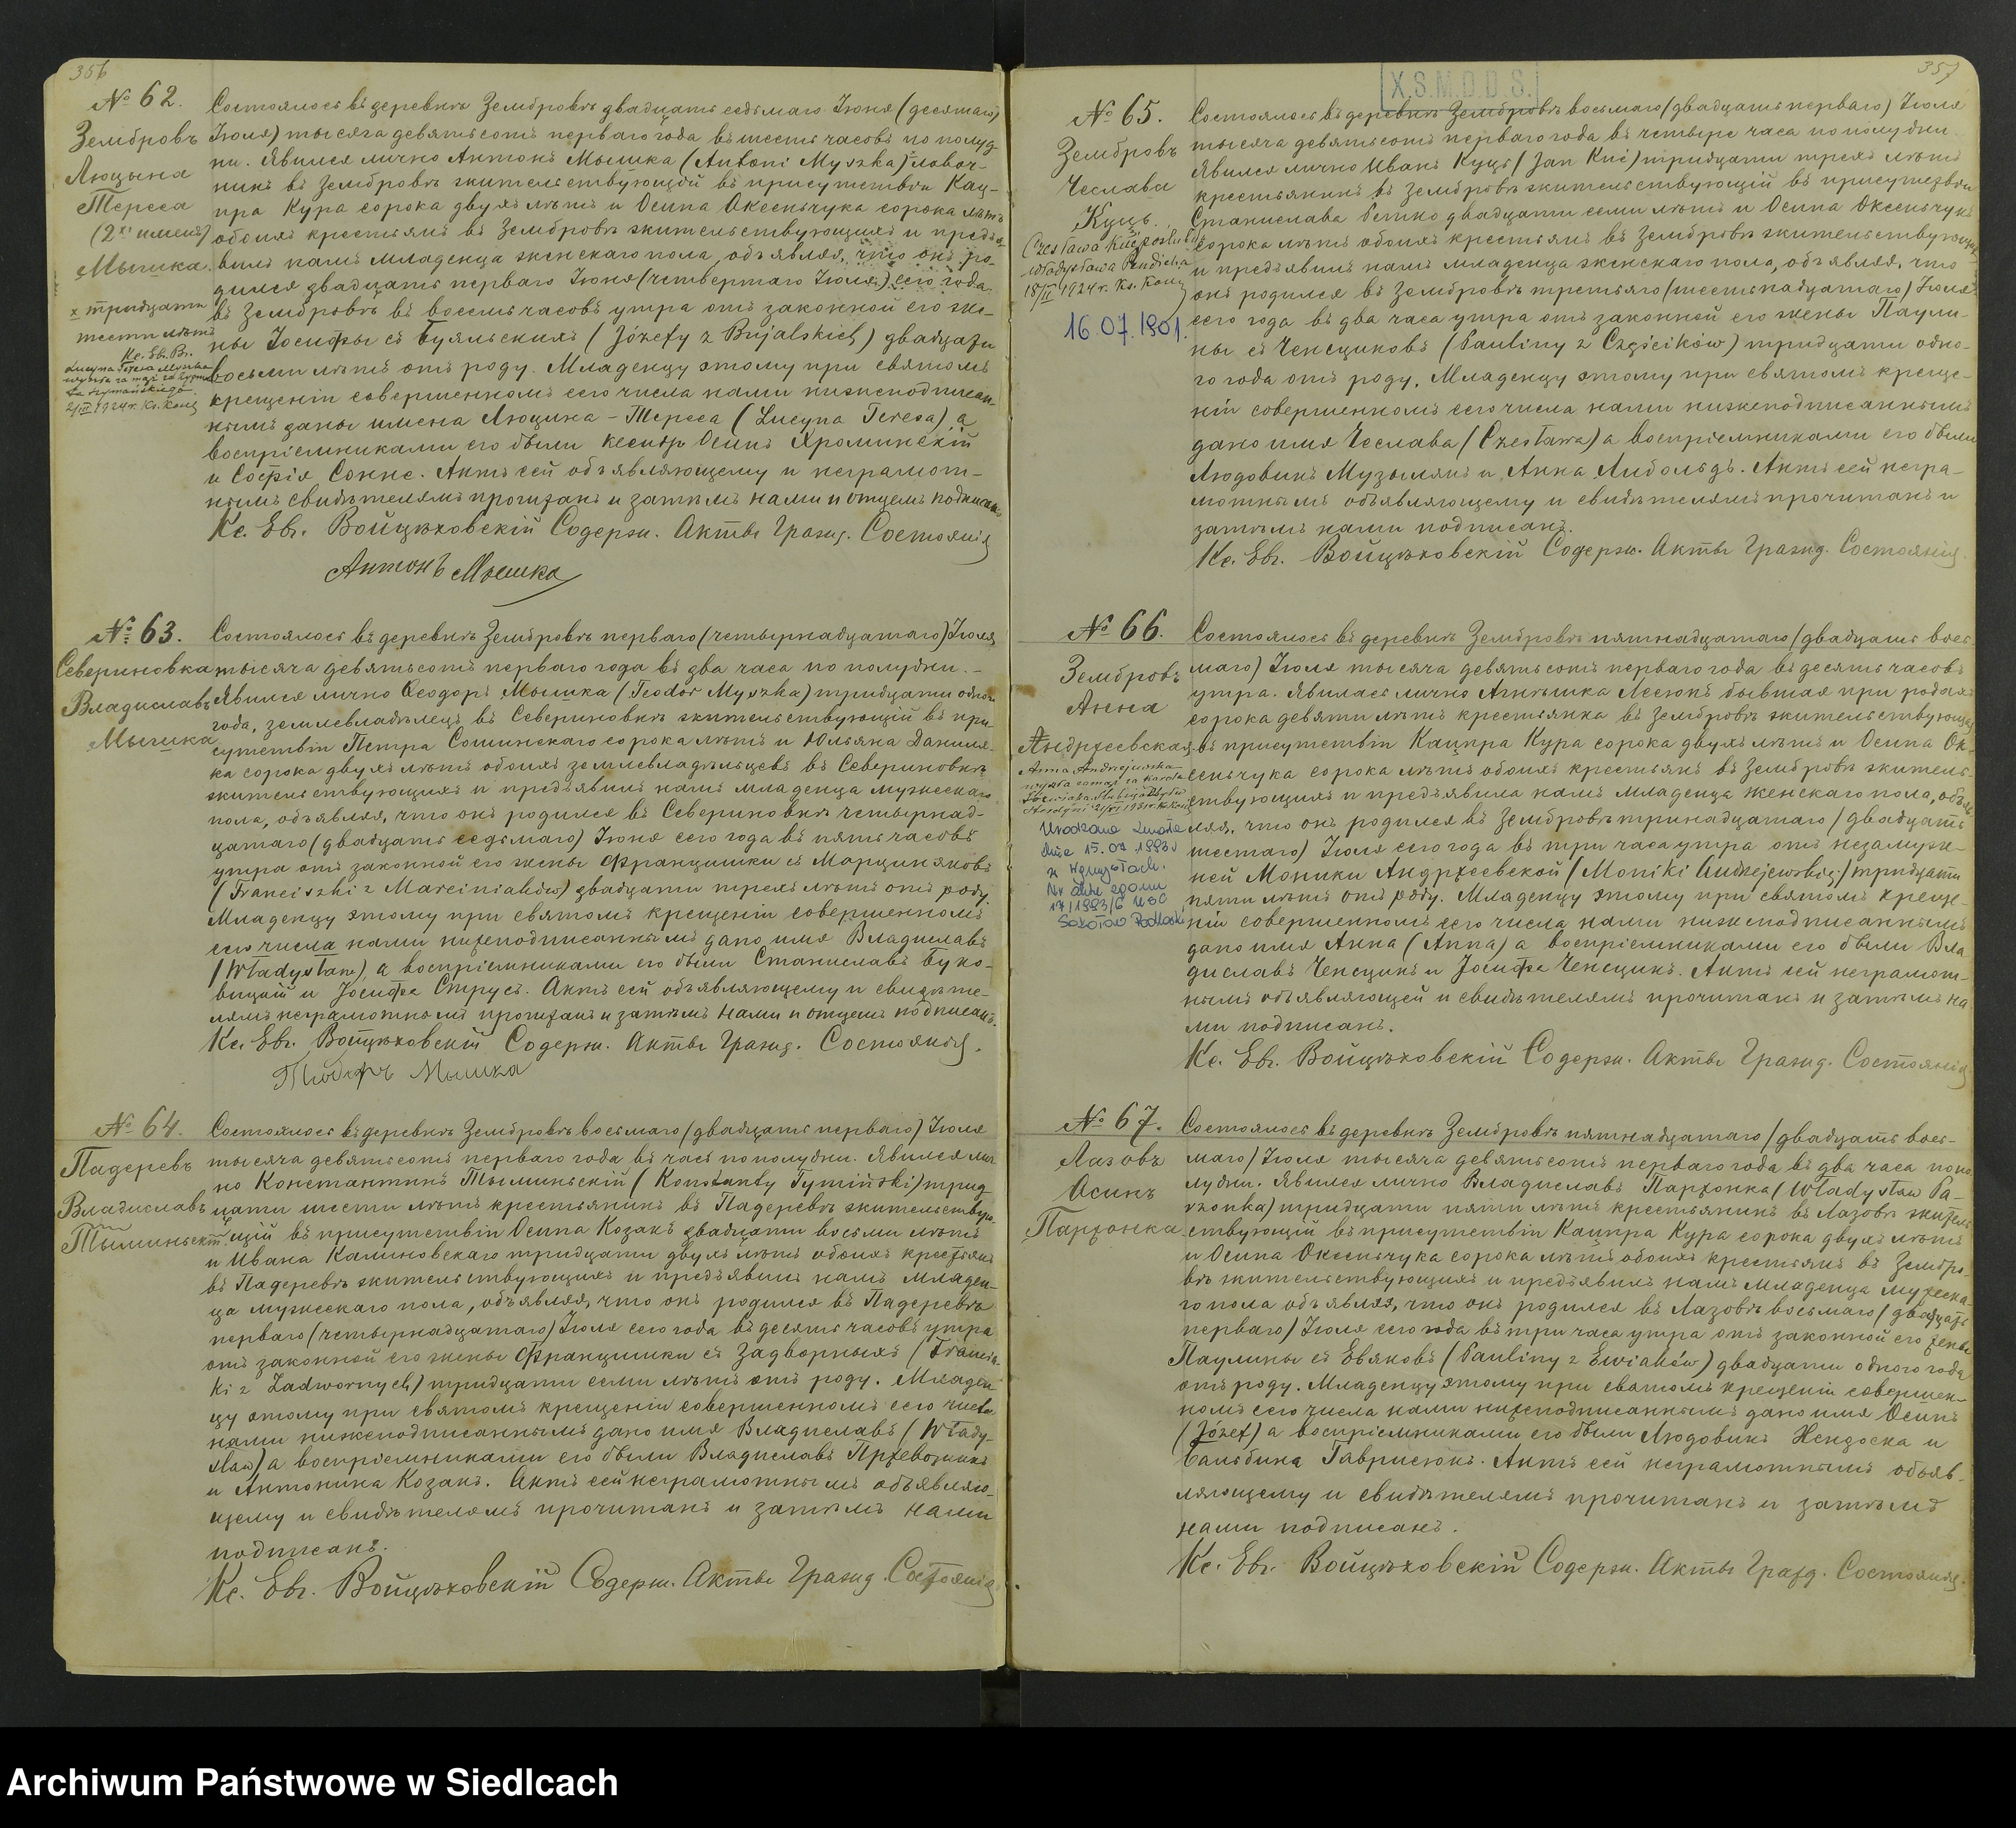 356
№ 62.
Зембровъ
Люцына
Тереса
(2хъ именъ)
Мышка.
х тридцати
шести лѣтъ
Кс. Ев. В.
Lucyna Teresa Myszka
wyszła za mąż za
2/III 1924 r. Ks. Konç
Состоялось въ деревнѣ Зембровѣ двадцать седьмаго Іюня (десятаго)
Іюля) тысяча девятьсотъ перваго года въ шесть часовъ по полуд
ни. Явился лично Антонъ Мышка (Antoni Myszka) х
никъ въ Зембровѣ жительствующій въ присутствіи Кац-
пра Кура сорока двухъ лѣтъ и Осипа Оксеньчука сорока лѣтъ
обоихъ крестьянъ въ Зембровѣ жительствующихъ и предъя
вилъ намъ младенца женскаго пола, объявляя, что онъ ро-
дился двадцать перваго Іюня (четвертаго Іюля) сего года
въ Зембровѣ въ восемь часовъ утра отъ законной его же-
ны Іосифы съ Буяльскихъ (Józefy z Bujalskich) двадцати
восьми лѣтъ отъ роду. Младенцу этому при святомъ
крещеніи совершенномъ сего числа нами нижеподписан-
нымъ даны имена Люцина - Тереса (Lucyna Teresa), а
воспріемниками его были ксендзъ Осипъ Хроминскій
и Софія Сокне. Актъ сей объявляющему и неграмот-
нымъ свидѣтелямъ прочитанъ и затѣмъ нами и отцемъ подписанъ
Кс. Ев. Войцѣховскій Содерж. Акты Гражд. Состоянія
Антонъ Мышка
№ 63.
Севериновка
Владиславъ
Мышка
Состоялось въ деревнѣ Зембровѣ перваго (четырнадцатаго) Іюля
тысяча девятьсотъ перваго года въ два часа по полудни. -
Явился лично Ѳеодоръ Мышка (Teodor Myszka) тридцати одного
года, землевладѣлецъ въ Севериновкѣ жительствующій въ при-
сутствіи Петра Сошинскаго сорока лѣтъ и Юльяна Данилю-
ка сорока двухъ лѣтъ обоихъ землевладѣльцевъ въ Севериновкѣ
жительствующихъ и предъявилъ намъ младенца мужескаго
пола, объявляя, что онъ родился въ Севериновкѣ четырнад-
цатаго (двадцать седьмаго) Іюня сего года въ пять часовъ
утра отъ законной его жены Францишки съ Марциняковъ
(Franciszki z Marciniaków) двадцати трехъ лѣтъ отъ роду.
Младенцу этому при святомъ крещеніи совершенномъ
сего числа нами нижеподписаннымъ дано имя Владиславъ
(Władysław), а воспріемниками его были Станиславъ Буко-
вицкій и Іосифа Струсъ. Актъ сей объявляющему и свидѣте-
лямъ неграмотнымъ прочитанъ и затѣмъ нами и отцемъ подписанъ.
Кс. Ев. Войцѣховскій Содерж. Акты Гражд. Состоянія.
Мышка
№ 64.
Падеревъ
Владиславъ
Тыминьскій
Состоялось въ деревнѣ Зембровѣ восьмаго (двадцать перваго) Іюля
тысяча девятьсотъ перваго года въ часъ по полудни. Явился лич
но Константинъ Тыминьскій (Konstanty Tymiński) трид
цати шести лѣтъ крестьянинъ въ Падеревѣ жительствую
щій въ присутствіи Осипа Козакъ двадцати восьми лѣтъ
и Ивана Калиновскаго тридцати двухъ лѣтъ обоихъ крестьянъ
въ Падеревѣ жительствующихъ и предъявилъ намъ младен-
ца мужескаго пола, объявляя, что онъ родился въ Падеревѣ
перваго (четырнадцатаго) Іюля сего года въ десять часовъ утра
отъ законной его жены Францишки съ Задворныхъ (Francisz-
ki z Zadwornych) тридцати семи лѣтъ отъ роду. Младен
цу этому при святомъ крещеніи совершенномъ сего числа
нами нижеподписаннымъ дано имя Владиславъ (Włady-
sław) а воспріемниками его были Владиславъ Пржевозникъ
и Антонина Козакъ. Актъ сей неграмотнымъ объявляю-
щему и свидѣтелямъ прочитанъ и затѣмъ нами
подписанъ.
Кс. Ев. Войцѣховскій Содерж. Акты Гражд. Состоянія
357
X.S.M.D.D.S.
№ 65.
Зембровъ
Чеслава
Куць.
Czesława Kuć poślubi
Władysława
18/II 1924 r. Ks. Konç
16.07.1901.
Состоялось въ деревнѣ Зембровѣ восьмаго (двадцать перваго) Іюля
тысяча девятьсотъ перваго года въ четыре часа по полудни
Явился лично Иванъ Куць (Jan Kuć) тридцати трехъ лѣтъ
крестьянинъ въ Зембровѣ жительствующій въ присутствіи
Станислава Ретко двадцати семи лѣтъ и Осипа Оксеньчука
сорока лѣтъ обоихъ крестьянъ въ Зембровѣ жительствующихъ
и предъявилъ намъ младенца женскаго пола, объявляя, что
онъ родился въ Зембровѣ третьяго (шестнадцатаго) Іюля
сего года въ два часа утра отъ законной его жены Паули-
ны съ Ченсциковъ (Pauliny z Częścików) тридцати одно-
го года отъ роду. Младенцу этому при святомъ креще-
ніи совершенномъ сего числа нами нижеподписаннымъ
дано имя Чеслава (Czesława) а воспріемниками его были
Людовикъ Музыманъ и Анна Либольдъ. Актъ сей негра-
мотнымъ объявляющему и свидѣтелямъ прочитанъ и
затѣмъ нами подписанъ.
Кс. Ев. Войцѣховскій Содерж. Акты Гражд. Состоянія.
№ 66.
Зембровъ
Анна
Андржеевская
Anna Andrzejewska
wyszła zamąż za Karola
21/VI 1931 r. Ks. Konç
Urodzona zmarła
dnia 15.07 1983 r
w Węgrzach.
Nr aktu zgonu
17/1983/G USC
Sokołów Podlaski
Состоялось въ деревнѣ Зембровѣ пятнадцатаго (двадцать вось-
маго) Іюля тысяча девятьсотъ перваго года въ десять часовъ
утра. Явилась лично Агнѣшка Лесюкъ бывшая при родахъ
сорока девяти лѣтъ крестьянка въ Зембровѣ жительствующая
въ присутствіи Кацпра Кура сорока двухъ лѣтъ и Осипа Ок-
сеньчука сорока лѣтъ обоихъ крестьянъ въ Зембровѣ житель-
ствующихъ и предъявила намъ младенца женскаго пола, объяв
ляя, что онъ родился въ Зембровѣ тринадцатаго (двадцать
шестаго) Іюля сего года въ три часа утра отъ незамуж-
ней Моники Андржеевской (Moniki Andrzejewskiej) тридцати
пяти лѣтъ отъ роду. Младенцу этому при святомъ креще-
ніи совершенномъ сего числа нами нижеподписаннымъ
дано имя Анна (Anna) а воспріемниками его были Вла
диславъ Ченсцикъ и Іосифа Ченсцикъ. Актъ сей неграмот-
нымъ объявляющей и свидѣтелямъ прочитанъ и затѣмъ на
ми подписанъ.
Кс. Ев. Войцѣховскій Содерж. Акты Гражд. Состоянія
№ 67.
Лазовъ
Осипъ
Паржонка
Состоялось въ деревнѣ Зембровѣ пятнадцатаго (двадцать вось-
маго) Іюля тысяча девятьсотъ перваго года въ два часа по по
лудни. Явился лично Владиславъ Паржонка (Władysław Pa-
rzonka) тридцати пяти лѣтъ крестьянинъ въ Лазовѣ житель
ствующій въ присутствіи Кацпра Кура сорока двухъ лѣтъ
и Осипа Оксеньчука сорока лѣтъ обоихъ крестьянъ въ Зембро-
вѣ жительствующихъ и предъявилъ намъ младенца мужеска-
го пола объявляя, что онъ родился въ Лазовѣ восьмаго (двадцать
перваго) Іюля сего года въ три часа утра отъ законной его жены
Паулины съ Евяковъ (Pauliny z Ewiaków) двадцати одного года
отъ роду. Младенцу этому при святомъ крещеніи совершен-
номъ сего числа нами нижеподписаннымъ дано имя Осипъ
(Józef) а воспріемниками его были Людовикъ Нендоска и
Бальбина Гаврисюкъ. Актъ сей неграмотнымъ объяв-
ляющему и свидѣтелямъ прочитанъ и затѣмъ
нами подписанъ.
Кс. Ев. Войцѣховскій Содерж. Акты Гражд. Состоянія.
Archiwum Państwowe w Siedlcach